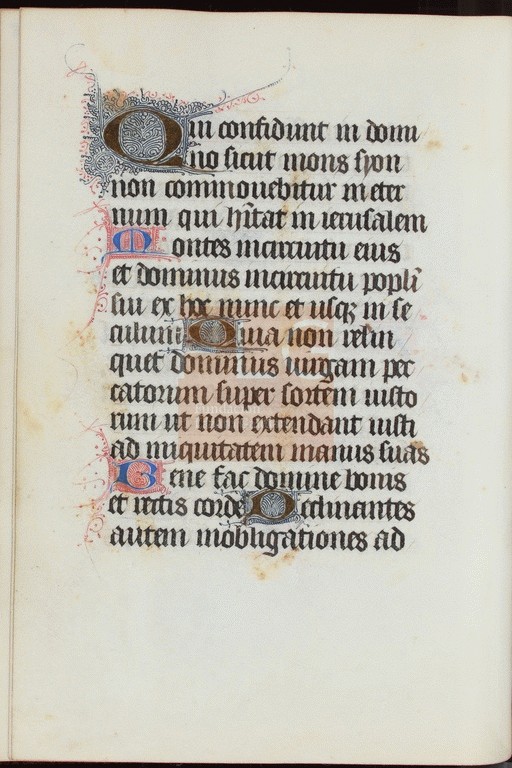 Qui confidunt in domi
no sicut mons syon
non commouebitur in eter
num qui hĩtat in ierusalem
Montes incircuitu eius
et dominus incircuitu popłi
sui ex hoc nunc et usqꝫ in se
culum Quia non relin
quet dominus uirgam pec
catorum super sortem iusto
rum ut non extendant iusti
ad iniquitatem manus suas
Bene fac domine bonis
et rectis corde Declinantes
autem inobligationes ad